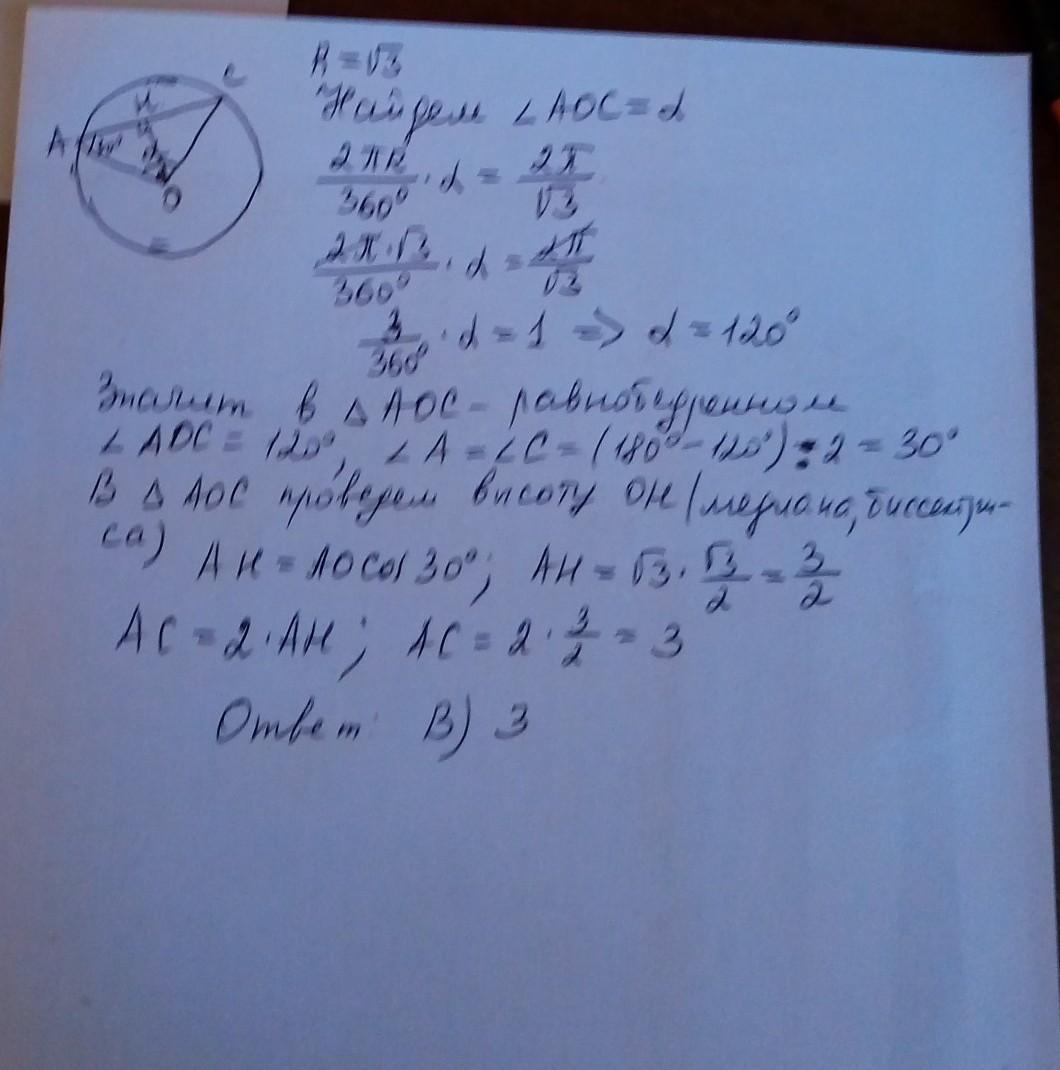 R = √3
Найдем ∠AOC = α
2πR/360° · α = 2π/√3
2π·√3/360° · α = 2π/√3
3/360° · α = 1 => α = 120°
Значит в △ AOC - равнобедренном
∠ AOC = 120°, ∠ A = ∠ C = (180° - 120°) : 2 = 30°
В △ AOC проведем высоту OH (медиана, биссектри-
са)
AH = AO cos 30°; AH = √3 · √3/2 = 3/2
AC = 2 · AH; AC = 2 · 3/2 = 3
Ответ: В) 3
A
H
C
O